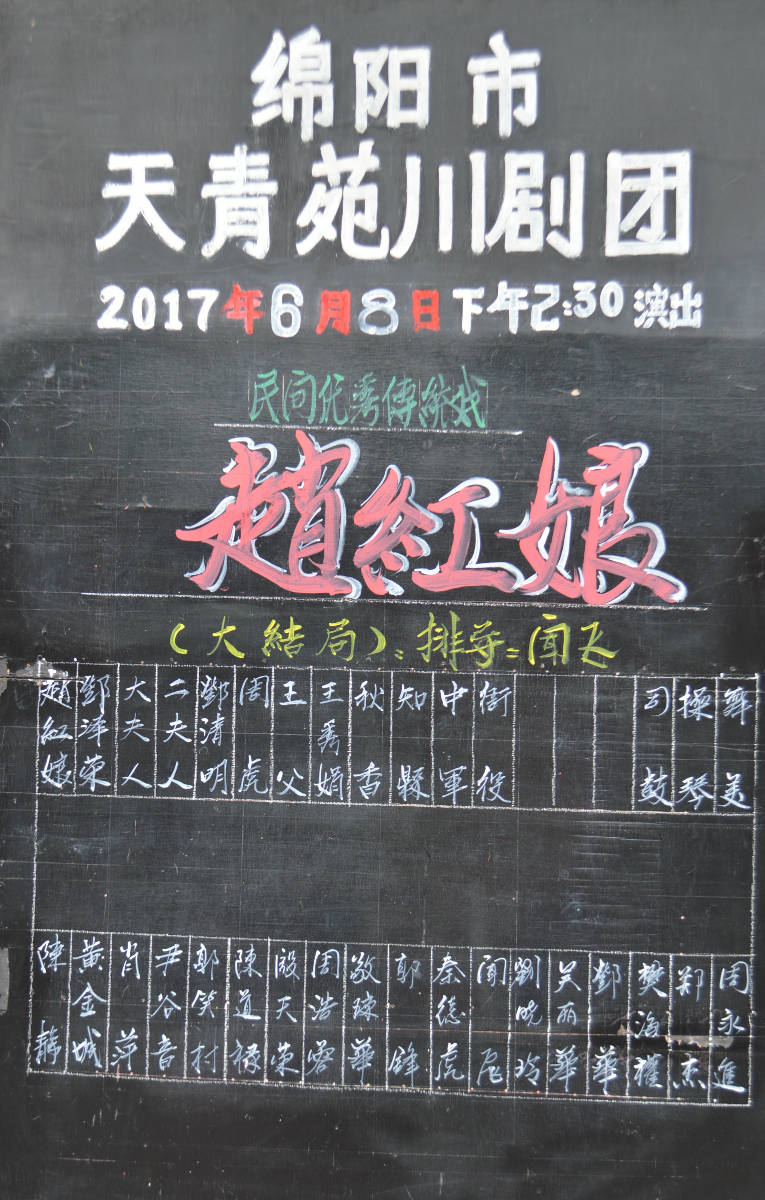 绵阳市
天青苑川剧团
2017年6月8日下午2:30演出
民间优秀傳統戏
趙紅娘
（大結局）：排导=闻飞
趙紅娘 鄧澤荣 大夫人 二夫人 鄧清明 周虎 王父 王秀娟 秋香 知縣 中軍 衙役 司鼓 操琴 舞美
陳 黄金城 肖萍 尹谷音 郭笑村 陳道禄 殷天荣 周浩 敬琼華 郭鋒 秦德虎 闻 劉晓玲 吴丽華 鄧華 樊 郑杰 周永進